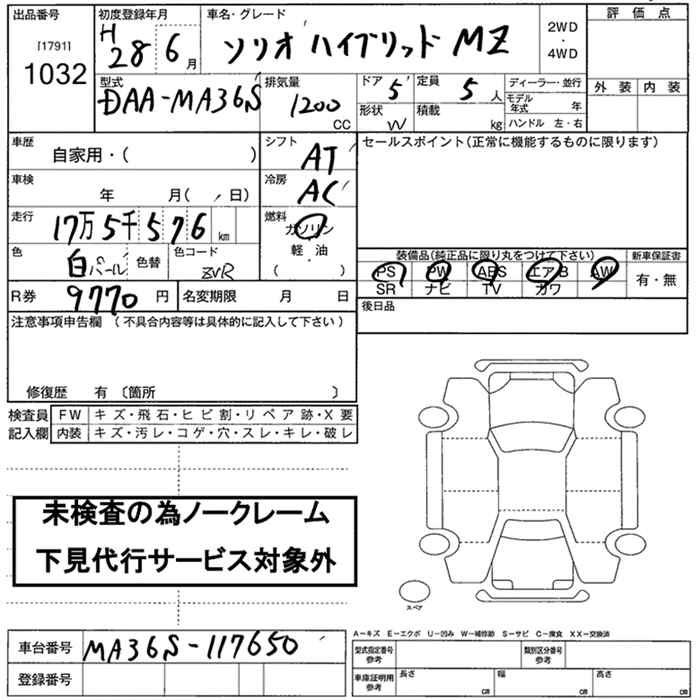 出品番号 初度登録年月 車名・グレード 評価点
[1791] 1032 H28 6月 ソリオ ハイブリッド MZ 2WD・4WD
型式 排気量 ドア 5 定員 5人 ディーラー・並行 外装 内装
DAA-MA36S 1200 CC 形状 W 積載 kg モデル年式 年
ハンドル 左・右
車歴 シフト セールスポイント(正常に機能するものに限ります)
自家用・( ) AT
車検 冷房
年 月( ・ 日) AC
走行 燃料
17万5千576km ガソリン
軽・油
( )
色 色替 色コード 装備品(純正品に限り丸をつけて下さい) 新車保証書
白パール ZVR PS PW ABS エアB AW 有・無
SR ナビ TV カワ
R券 9770円 名変期限 月 日 後日品
注意事項申告欄 (不具合内容等は具体的に記入して下さい)
修復歴 有 〔箇所 〕
検査員 FW キズ・飛石・ヒビ割・リペア跡・X要
記入欄 内装 キズ・汚レ・コゲ・穴・スレ・キレ・破レ
未検査の為ノークレーム
下見代行サービス対象外
スペア
A−キズ E−エクボ U−凹み W−補修跡 S−サビ C−腐食 XX−交換済
車台番号 MA36S-117650 型式指定番号 参考 類別区分番号 参考
登録番号 車庫証明用 参考 長さ cm 幅 cm 高さ cm